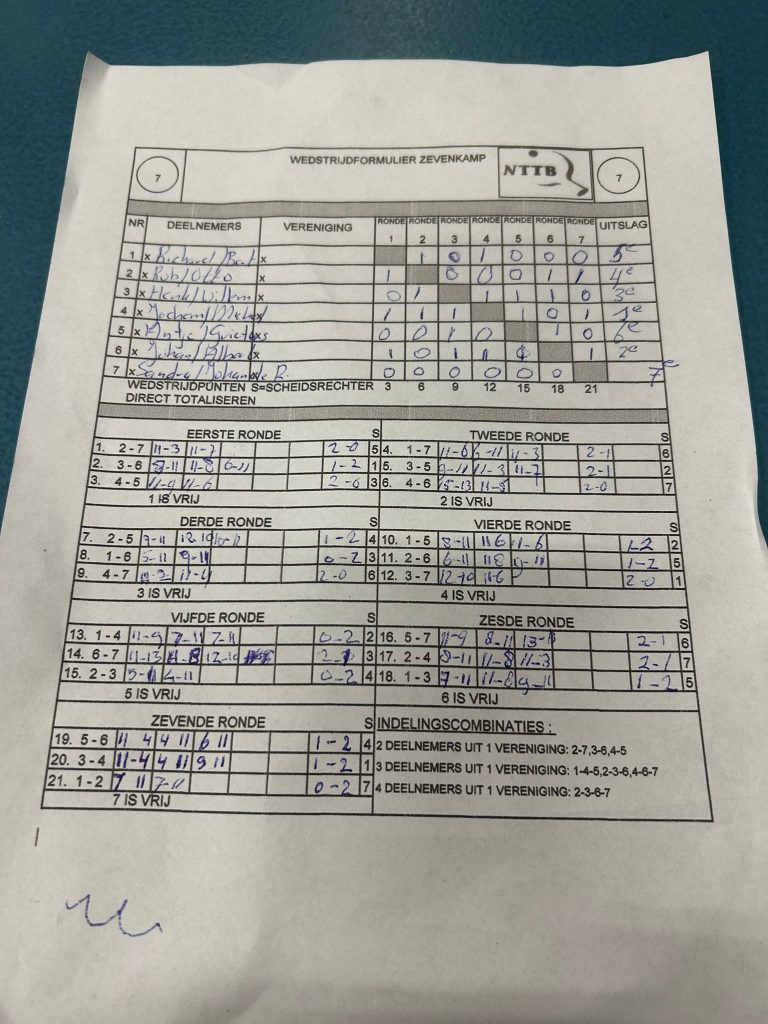 7 WEDSTRIJDFORMULIER ZEVENKAMP NTTB 7
NR DEELNEMERS VERENIGING RONDE 1 RONDE 2 RONDE 3 RONDE 4 RONDE 5 RONDE 6 RONDE 7 UITSLAG
1 x Richard/Bert x 1 0 1 0 0 0 5e
2 x Rob/Otto x 1 0 0 0 1 1 4e
3 x Henk/Willem x 0 1 1 1 1 0 3e
4 x Jochem/ x 1 1 1 1 0 1 1e
5 x Antje/ x 0 0 1 0 1 0 6e
6 x Johan/ x 1 0 1 1 1 2e
7 x Sandra/Johan de R. 0 0 0 0 0 0 7e
WEDSTRIJDPUNTEN S=SCHEIDSRECHTER 3 6 9 12 15 18 21
DIRECT TOTALISEREN
EERSTE RONDE S
1. 2-7 11-3 11-7 2-0 5
2. 3-6 11-8 6-11 1-2 1
3. 4-5 11-9 11-6 2-0 3
1 IS VRIJ
TWEEDE RONDE S
4. 1-7 11-6 11-3 2-1 6
5. 3-5 9-11 11-3 11-7 2-1 2
6. 4-6 15-13 11-5 2-0 7
2 IS VRIJ
DERDE RONDE S
7. 2-5 12-10 10-12 1-2 4
8. 1-6 5-11 9-11 0-2 3
9. 4-7 11-4 2-0 6
3 IS VRIJ
VIERDE RONDE S
10. 1-5 8-11 11 6 11-6 1-2 2
11. 2-6 6-11 11 8 1-2 5
12. 3-7 12-10 11-6 2-0 1
4 IS VRIJ
VIJFDE RONDE S
13. 1-4 11-9 7-11 7-11 0-2 2
14. 6-7 11-13 11-8 12-10 2-1 3
15. 2-3 5-11 4-11 0-2 4
5 IS VRIJ
ZESDE RONDE S
16. 5-7 11-9 8-11 2-1 6
17. 2-4 11-8 11-3 2-1 7
18. 1-3 7-11 11-8 9-11 1-2 5
6 IS VRIJ
ZEVENDE RONDE S
19. 5-6 11 4 4 11 6 11 1-2 4
20. 3-4 11-4 4 11 9 11 1-2 1
21. 1-2 7 11 7-11 0-2 7
7 IS VRIJ
INDELINGSCOMBINATIES :
2 DEELNEMERS UIT 1 VERENIGING: 2-7,3-6,4-5
3 DEELNEMERS UIT 1 VERENIGING: 1-4-5,2-3-6,4-6-7
4 DEELNEMERS UIT 1 VERENIGING: 2-3-6-7